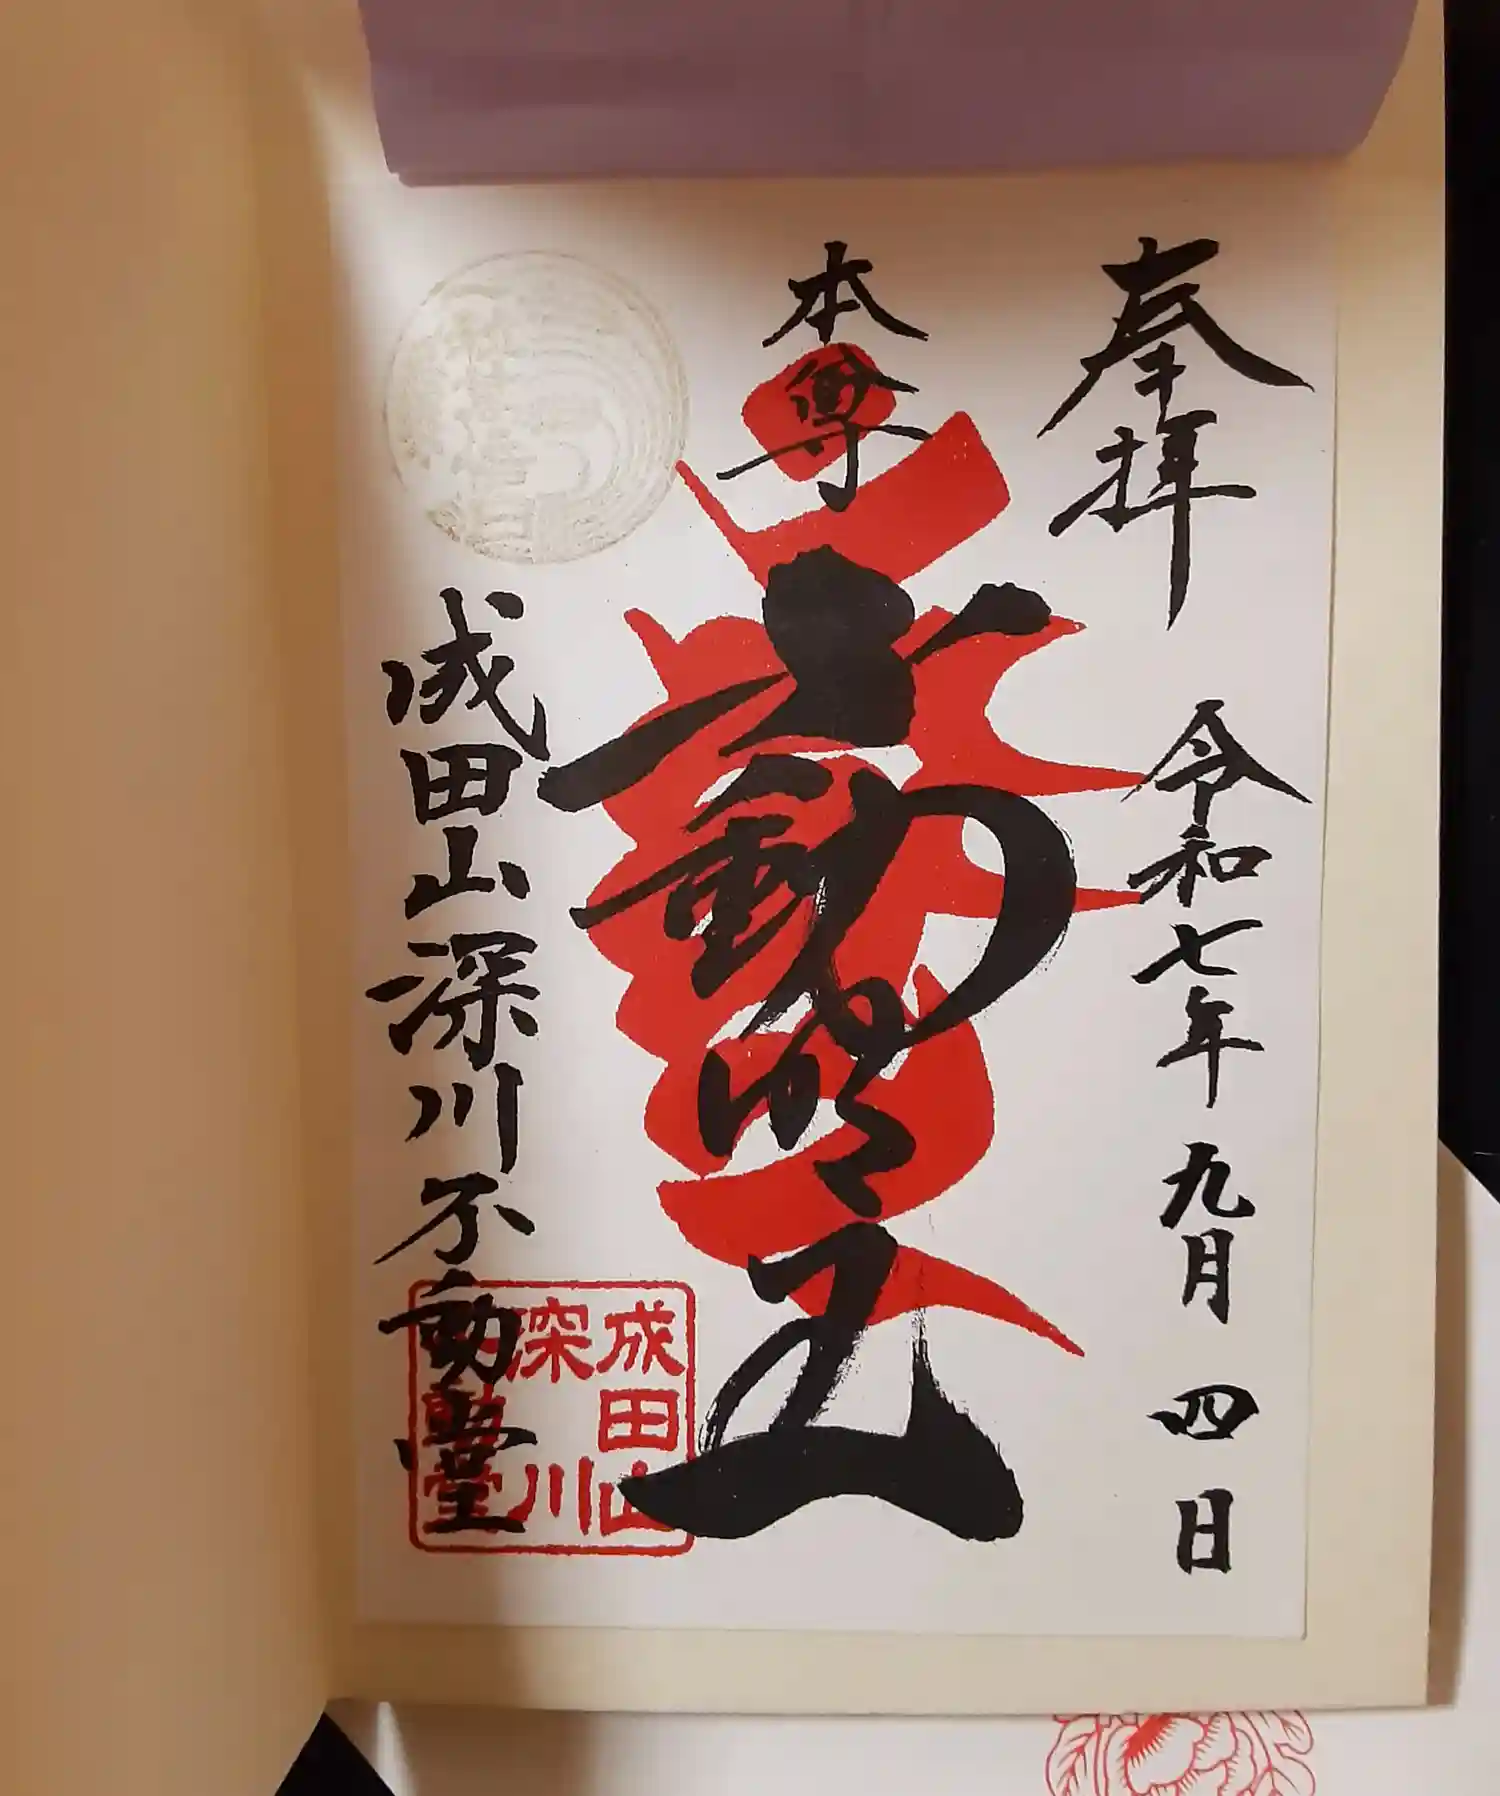 奉拝
令和七年九月四日
本尊
不動明王
成田山深川不動堂
成田山
深川
不動堂